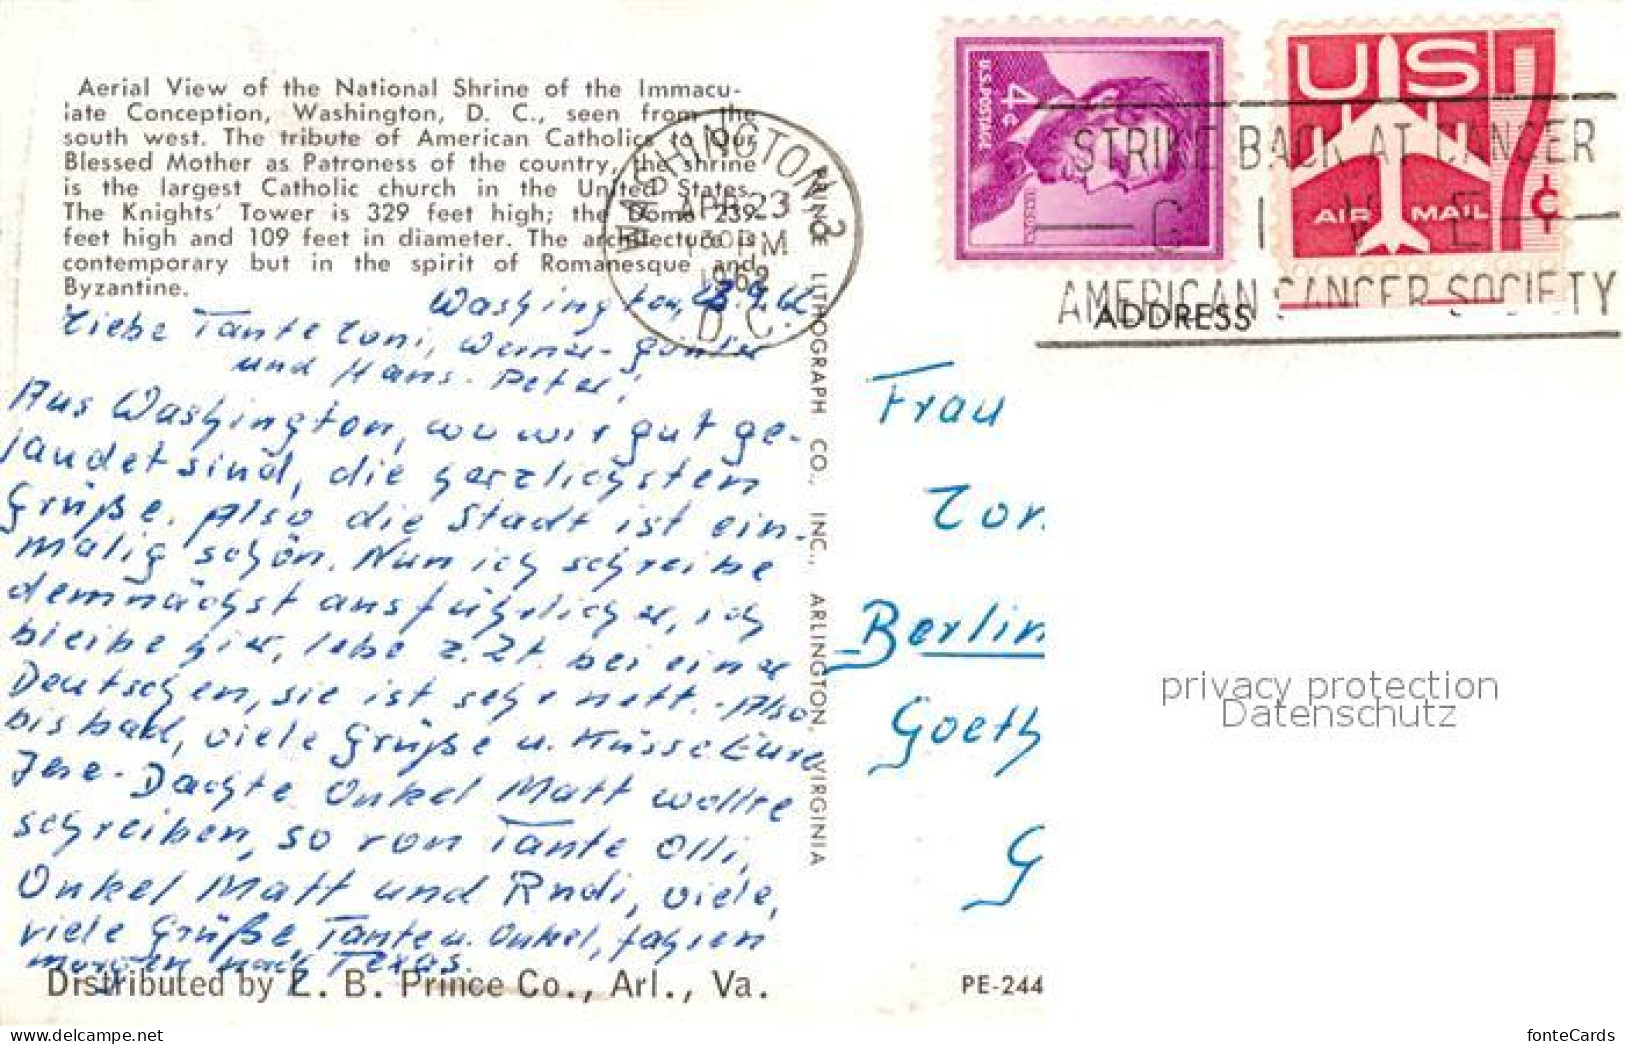 Aerial View of the National Shrine of the Immacu-
late Conception, Washington, D. C., seen from the
south west. The tribute of American Catholics to Our
Blessed Mother as Patroness of the country, the shrine
is the largest Catholic church in the United States.
The Knights' Tower is 329 feet high; the Dome 239
feet high and 109 feet in diameter. The architecture is
contemporary but in the spirit of Romanesque and
Byzantine.
WASHINGTON 3
APR 23
PM
1962
D.C.
U.S. POSTAGE
4c
LINCOLN
US
7c
AIR MAIL
STRIKE BACK AT CANCER
GIVE
AMERICAN CANCER SOCIETY
ADDRESS
Washington, 4.62
Liebe Tante Loni, Werner-Günter
und Hans-Peter!
Aus Washington, wo wir gut ge-
landet sind, die herzlichsten
Grüße. Also die Stadt ist ein-
malig schön. Nun ich schreibe
demnächst ausführlicher, ich
bleibe hier, lebe z. Zt. bei einer
Deutschen, sie ist sehr nett. - Also
bis bald, viele Grüße u. Küsse Eure
Dachte Onkel Matt wollte
schreiben, so von Tante Olli,
Onkel Matt und Rudi, viele,
viele Grüße, Tante u. Onkel, fahren
morgen nach Texas.
PRINCE LITHOGRAPH CO., INC., ARLINGTON, VIRGINIA
Frau
Lon
Berlin
Goeth
G
privacy protection
Datenschutz
Distributed by L. B. Prince Co., Arl., Va.
PE-244
www.delcampe.net
fonteCards